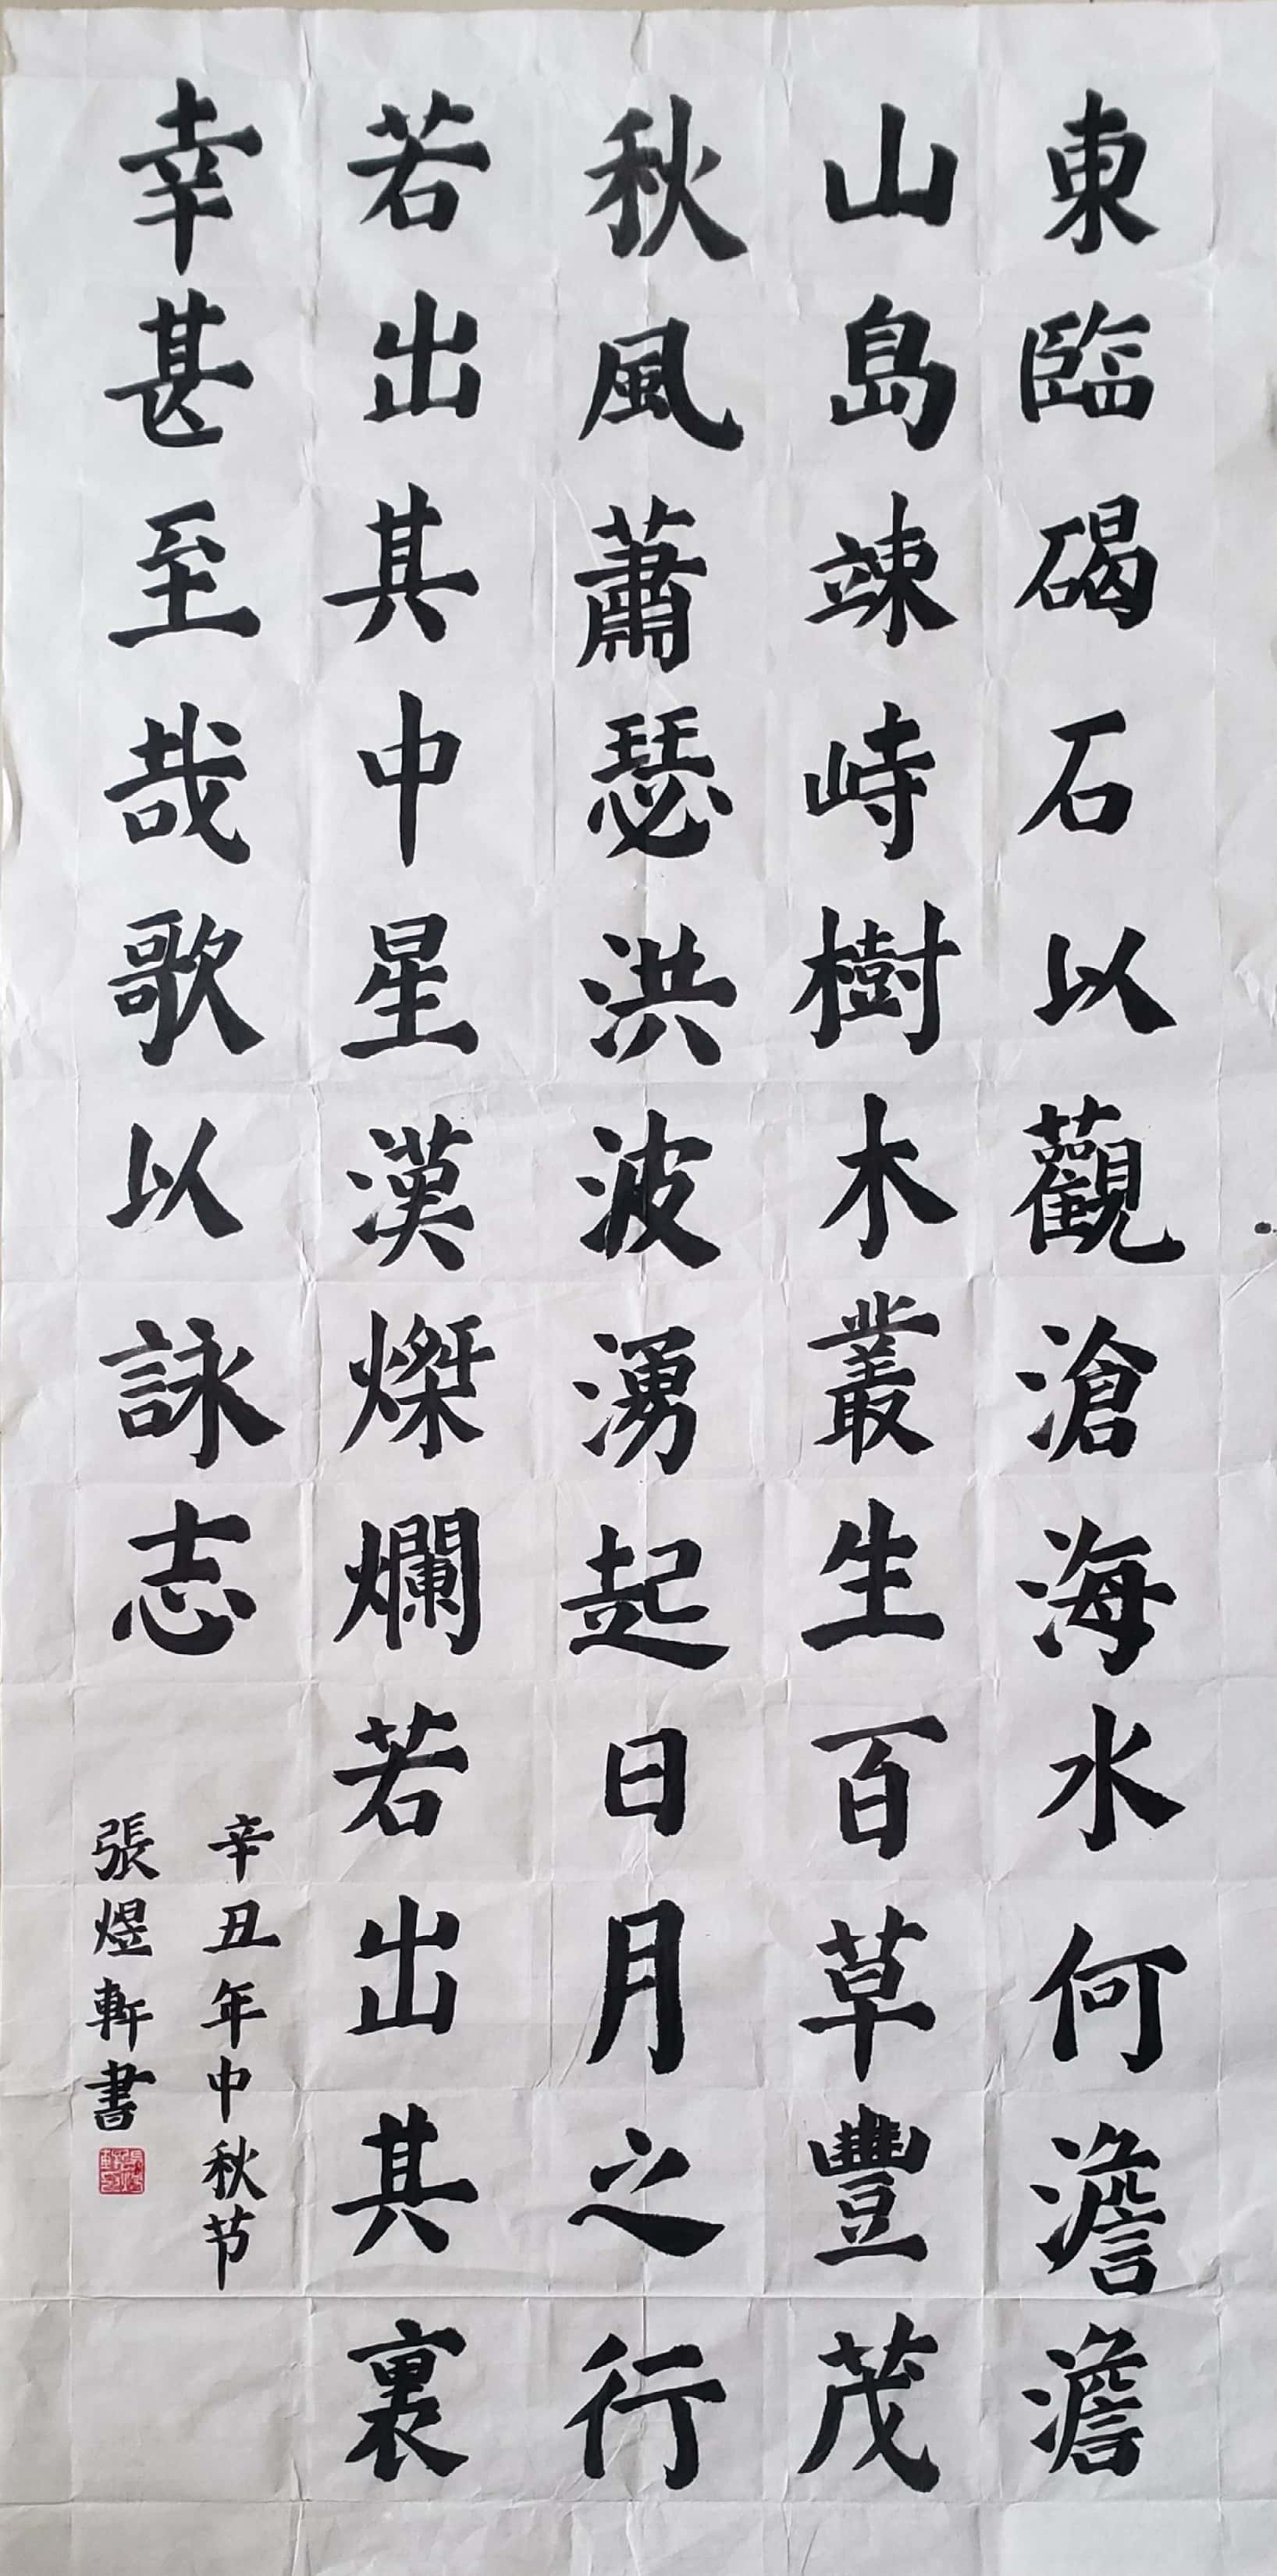 東臨碣石以觀滄海水何澹澹
山島竦峙樹木叢生百草豐茂
秋風蕭瑟洪波湧起日月之行
若出其中星漢燦爛若出其裏
幸甚至哉歌以詠志
辛丑年中秋节
張煜軒書